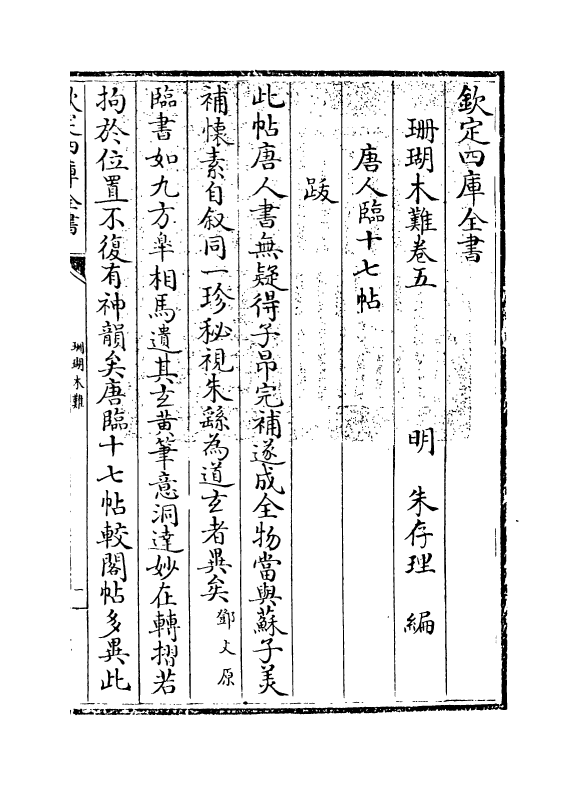 欽定四庫全書
珊瑚木難卷五
明 朱存理 編
唐人臨十七帖
跋
此帖唐人書無疑得子昂完補遂成全物當與蘇子美
補懷素自叙同一珍秘視朱繇為道玄者異矣 鄧文原
臨書如九方臯相馬遺其玄黄筆意洞達妙在轉摺若
拘於位置不復有神韻矣唐臨十七帖較閣帖多異此
欽定四庫全書
珊瑚木難